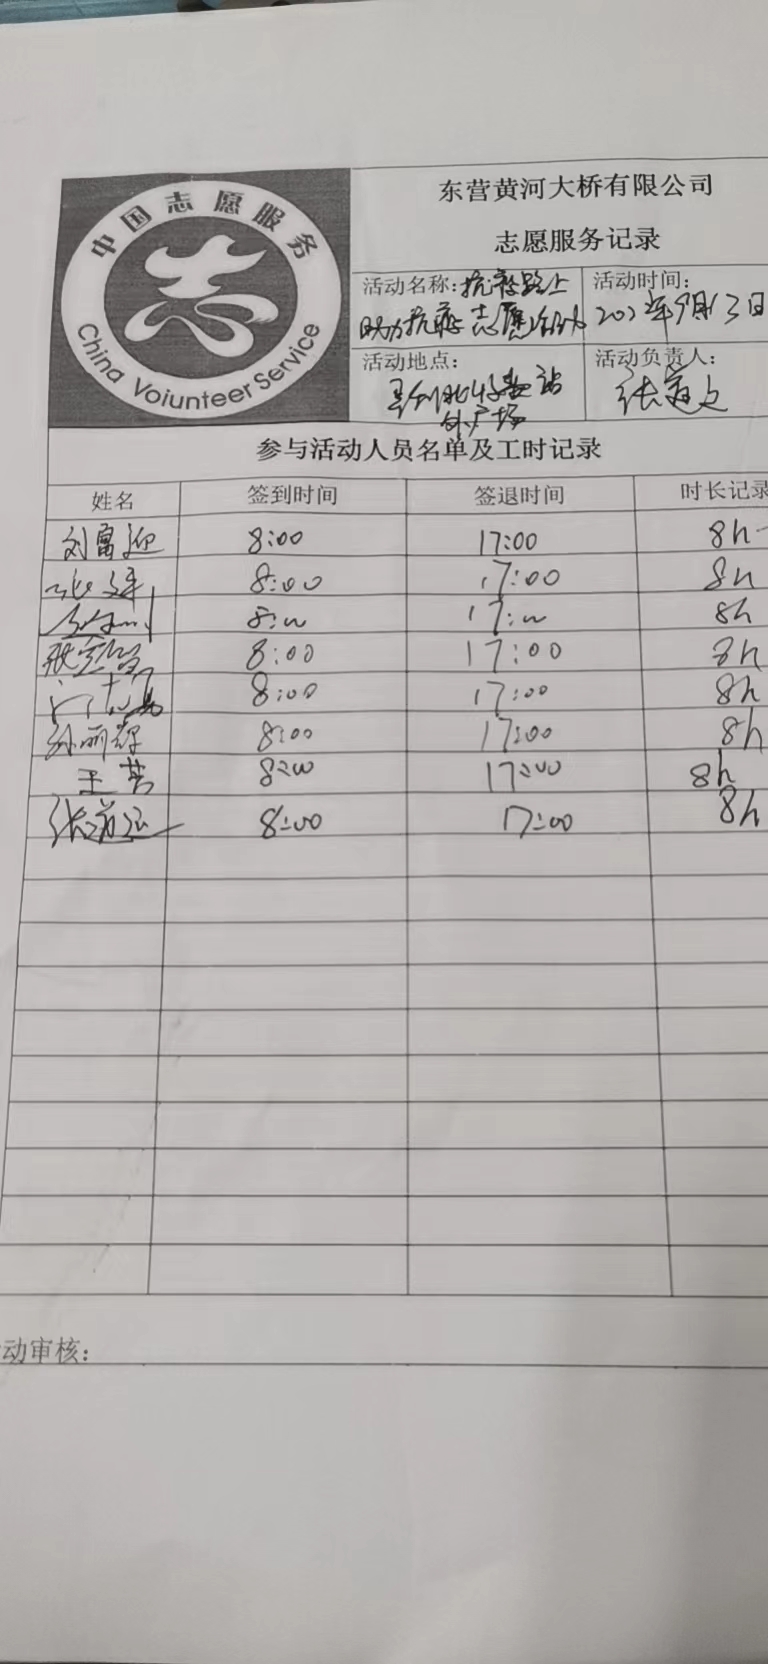 中国志愿服务
China Voiunteer Service
东营黄河大桥有限公司
志愿服务记录
活动名称:抗疫路上
助力抗疫志愿活动
活动时间:
年9月13日
活动地点:
站
外广场
活动负责人:
张
参与活动人员名单及工时记录
姓名 签到时间 签退时间 时长记录
刘富迎 8:00 17:00 8h
8:00 17:00 8h
8:00 17:00 8h
8:00 17:00 8h
8:00 17:00 8h
孙丽辉 8:00 17:00 8h
王 8:00 17:00 8h
张 8:00 17:00 8h
动审核: